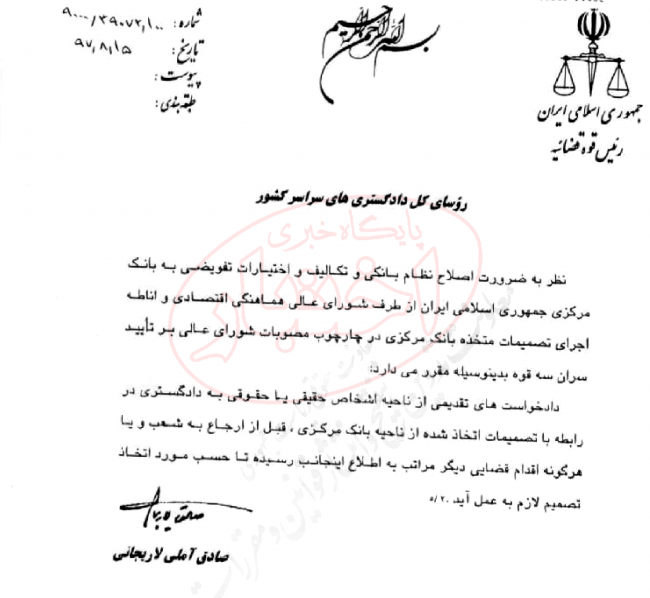 بسم الله الرحمن الرحیم
جمهوری اسلامی ایران
رئیس قوه قضائیه
شماره: ۹۰۰۰/۳۹۰۷۲/۱۰۰
تاریخ: ۹۷/۸/۱۵
پیوست:
طبقه بندی:
رؤسای کل دادگستری های سراسر کشور
نظر به ضرورت اصلاح نظام بانکی و تکالیف و اختیارات تفویضی به بانک
مرکزی جمهوری اسلامی ایران از طرف شورای عالی هماهنگی اقتصادی و اناطه
اجرای تصمیمات متخذه بانک مرکزی در چارچوب مصوبات شورای عالی بر تأیید
سران سه قوه بدینوسیله مقرر می دارد:
دادخواست های تقدیمی از ناحیه اشخاص حقیقی یا حقوقی به دادگستری در
رابطه با تصمیمات اتخاذ شده از ناحیه بانک مرکزی ، قبل از ارجاع به شعب و یا
هرگونه اقدام قضایی دیگر مراتب به اطلاع اینجانب رسیده تا حسب مورد اتخاذ
تصمیم لازم به عمل آید ۵/۲۰
صادق آملی لاریجانی
پایگاه خبری